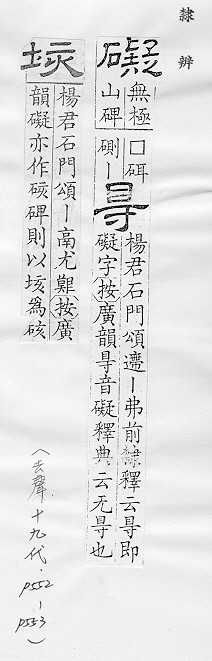 隸辨
礙
無極
山碑
口
硎｜
㝵
楊君石門頌遰｜弗前隸釋云㝵即
礙字按廣韻㝵音礙釋典云无㝵也
垓
楊君石門頌｜鬲尤難按廣
韻礙亦作硋碑則以垓為硋
(去聲.十九代.P552-P553)